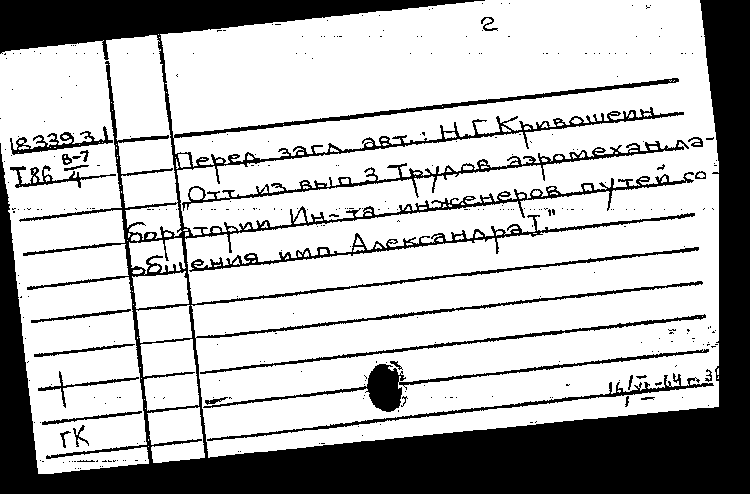 2
18.339.3.1
I 86 В-7/4
Перед загл. авт.: Н.Г. Кривошеин
"Отт. из вып 3 Трудов аэромехан. ла-
боратории Ин-та инженеров путей со-
общения имп. Александра I."
ГК